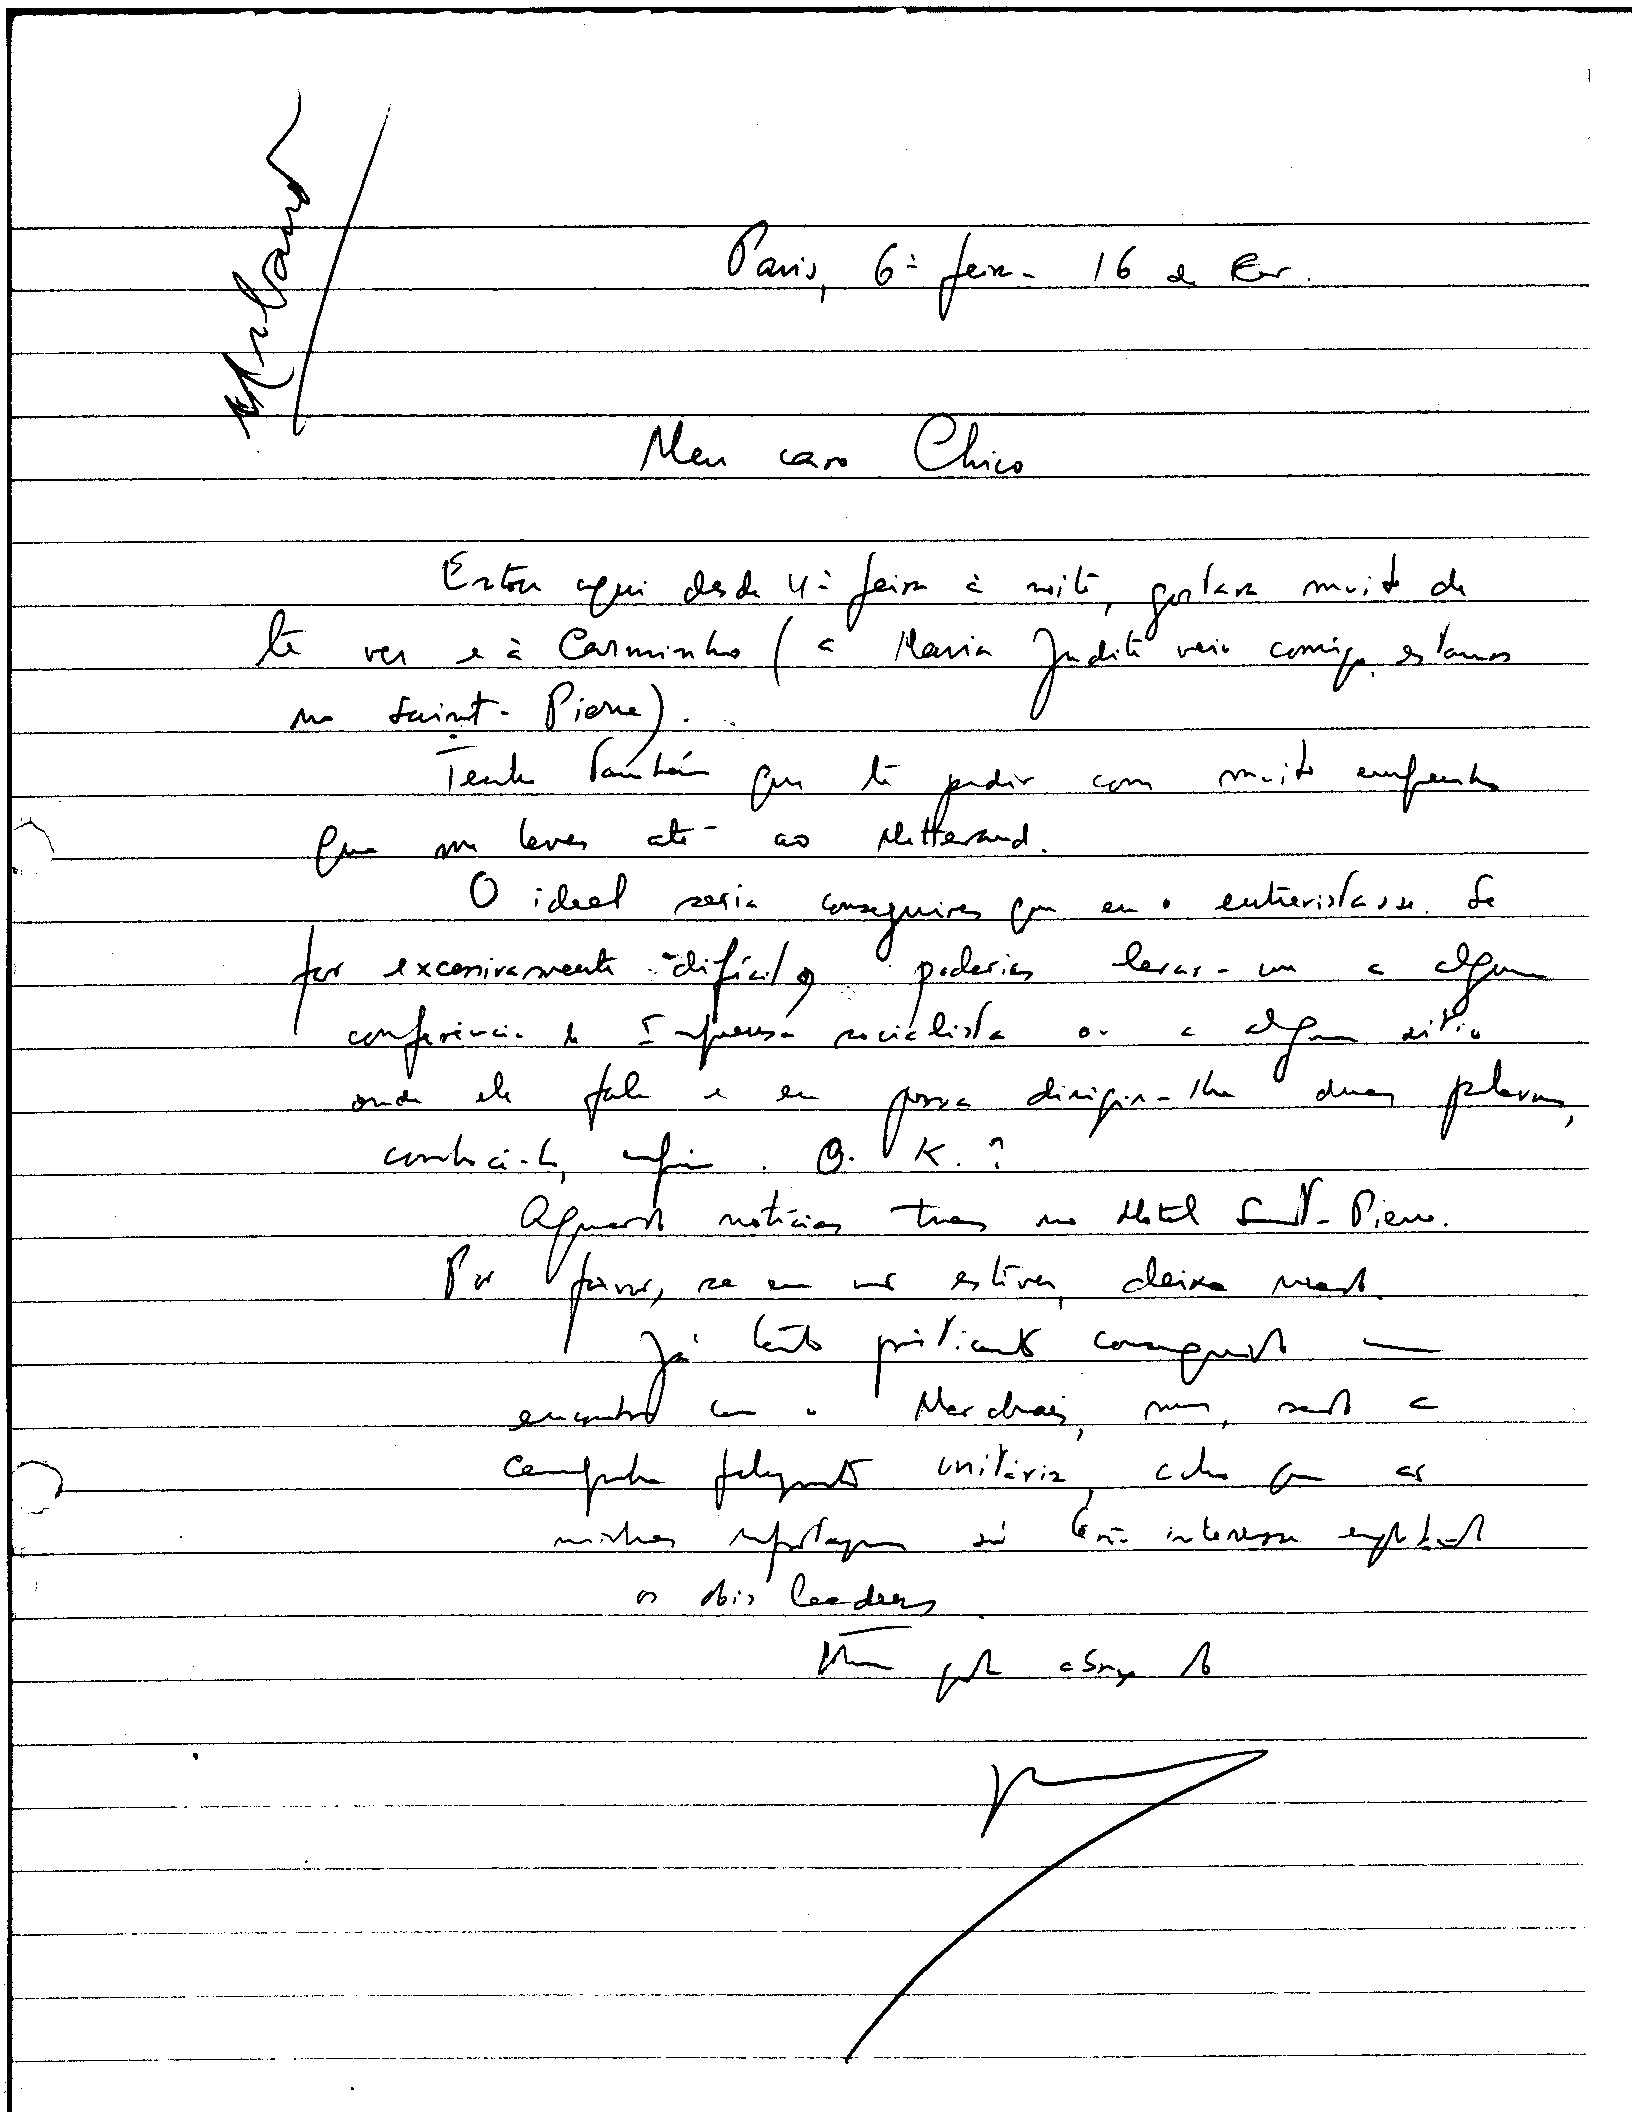 Urbano
Paris, 6ª feira - 16 de Fev.
Meu caro Chico
Estou aqui desde 4ª feira à noite, gostava muito de
te ver e à Carminho (a Maria Judite veio comigo, estamos
no Saint-Pierre).
Tenho também que te pedir com muito empenho
que me leves até ao Mitterand.
O ideal seria conseguires que eu o entrevistasse. Se
for excessivamente difícil, poderias levar-me a alguma
conferência de Imprensa socialista ou a algum sítio
onde ele fale e eu possa dirigir-lhe duas palavras,
conhecê-lo, enfim. O. K.?
Aguardo notícias tuas no Hotel Saint-Pierre.
Por favor, se eu não estiver, deixa recado.
Já tenho praticamente conseguido um
encontro com o Marchais, mas, sendo a
campanha unitária, acho que as
minhas reportagens só terão interesse englobando
os dois leaders.
grande abraço do